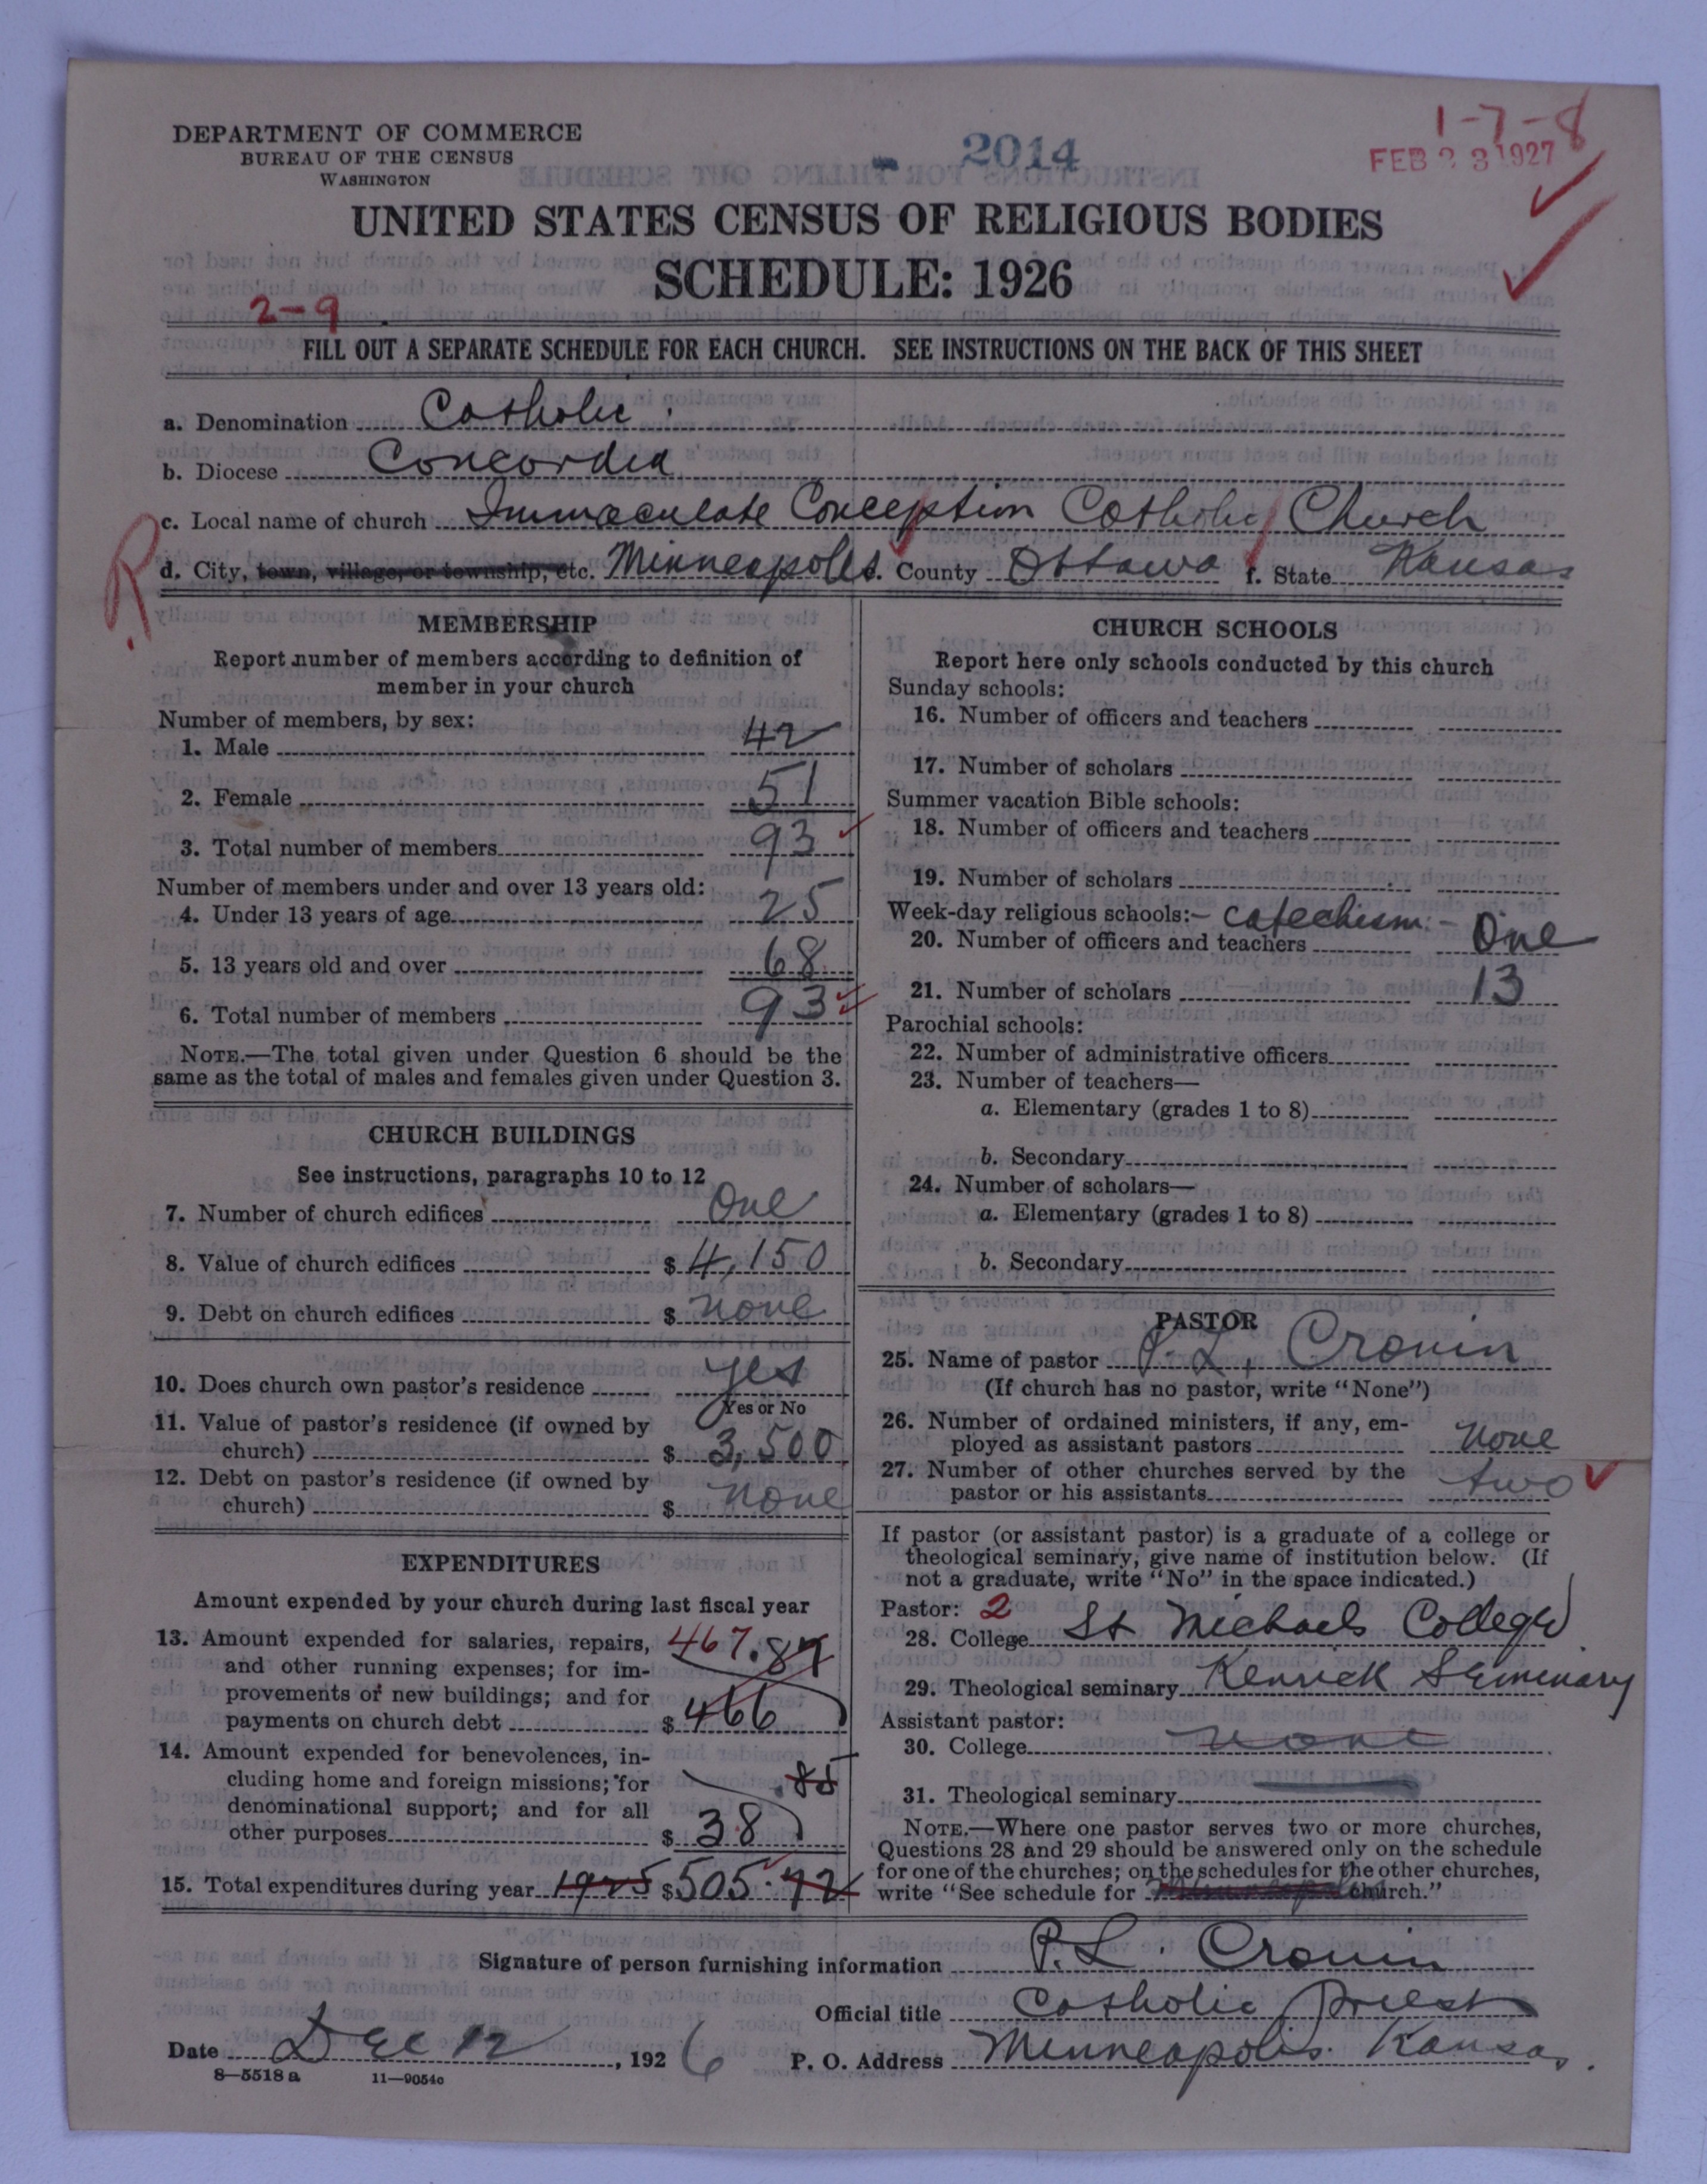 DEPARTMENT OF COMMERCE
BUREAU OF THE CENSUS
WASHINGTON
2014
1-7-8
FEB 23 1927
UNITED STATES CENSUS OF RELIGIOUS BODIES
SCHEDULE: 1926
2-9
FILL OUT A SEPARATE SCHEDULE FOR EACH CHURCH. SEE INSTRUCTIONS ON THE BACK OF THIS SHEET
a. Denomination Catholic.
b. Diocese Concordia
c. Local name of church Immaculate Conception Catholic Church
R
d. City, town, village, or township, etc. Minneapolis. County Ottawa f. State Kansas
MEMBERSHIP
Report number of members according to definition of
member in your church
Number of members, by sex:
1. Male 42
2. Female 51
3. Total number of members 93
Number of members under and over 13 years old:
4. Under 13 years of age 25
5. 13 years old and over 68
6. Total number of members 93
NOTE.—The total given under Question 6 should be the
same as the total of males and females given under Question 3.
CHURCH BUILDINGS
See instructions, paragraphs 10 to 12
7. Number of church edifices One
8. Value of church edifices $ 4,150
9. Debt on church edifices $ none
10. Does church own pastor's residence yes
Yes or No
11. Value of pastor's residence (if owned by
church) $ 3,500
12. Debt on pastor's residence (if owned by
church) $ none
EXPENDITURES
Amount expended by your church during last fiscal year
13. Amount expended for salaries, repairs, 467.87
and other running expenses; for im-
provements or new buildings; and for
payments on church debt $ 466
14. Amount expended for benevolences, in-
cluding home and foreign missions; for .85
denominational support; and for all
other purposes $ 38
15. Total expenditures during year 1925 $ 505.72
CHURCH SCHOOLS
Report here only schools conducted by this church
Sunday schools:
16. Number of officers and teachers
17. Number of scholars
Summer vacation Bible schools:
18. Number of officers and teachers
19. Number of scholars
Week-day religious schools:- catechism.-
20. Number of officers and teachers One
21. Number of scholars 13
Parochial schools:
22. Number of administrative officers
23. Number of teachers—
a. Elementary (grades 1 to 8)
b. Secondary
24. Number of scholars—
a. Elementary (grades 1 to 8)
b. Secondary
PASTOR
25. Name of pastor P. L. Cronin
(If church has no pastor, write "None")
26. Number of ordained ministers, if any, em-
ployed as assistant pastors none
27. Number of other churches served by the
pastor or his assistants two
If pastor (or assistant pastor) is a graduate of a college or
theological seminary, give name of institution below. (If
not a graduate, write "No" in the space indicated.)
Pastor: 2
28. College St Michaels College
29. Theological seminary Kenrick Seminary
Assistant pastor:
30. College none
31. Theological seminary
NOTE.—Where one pastor serves two or more churches,
Questions 28 and 29 should be answered only on the schedule
for one of the churches; on the schedules for the other churches,
write "See schedule for church."
Signature of person furnishing information P. L. Cronin
Official title Catholic Priest
Date Dec 12, 1926 P. O. Address Minneapolis. Kansas.
8—5518 a 11—9054c